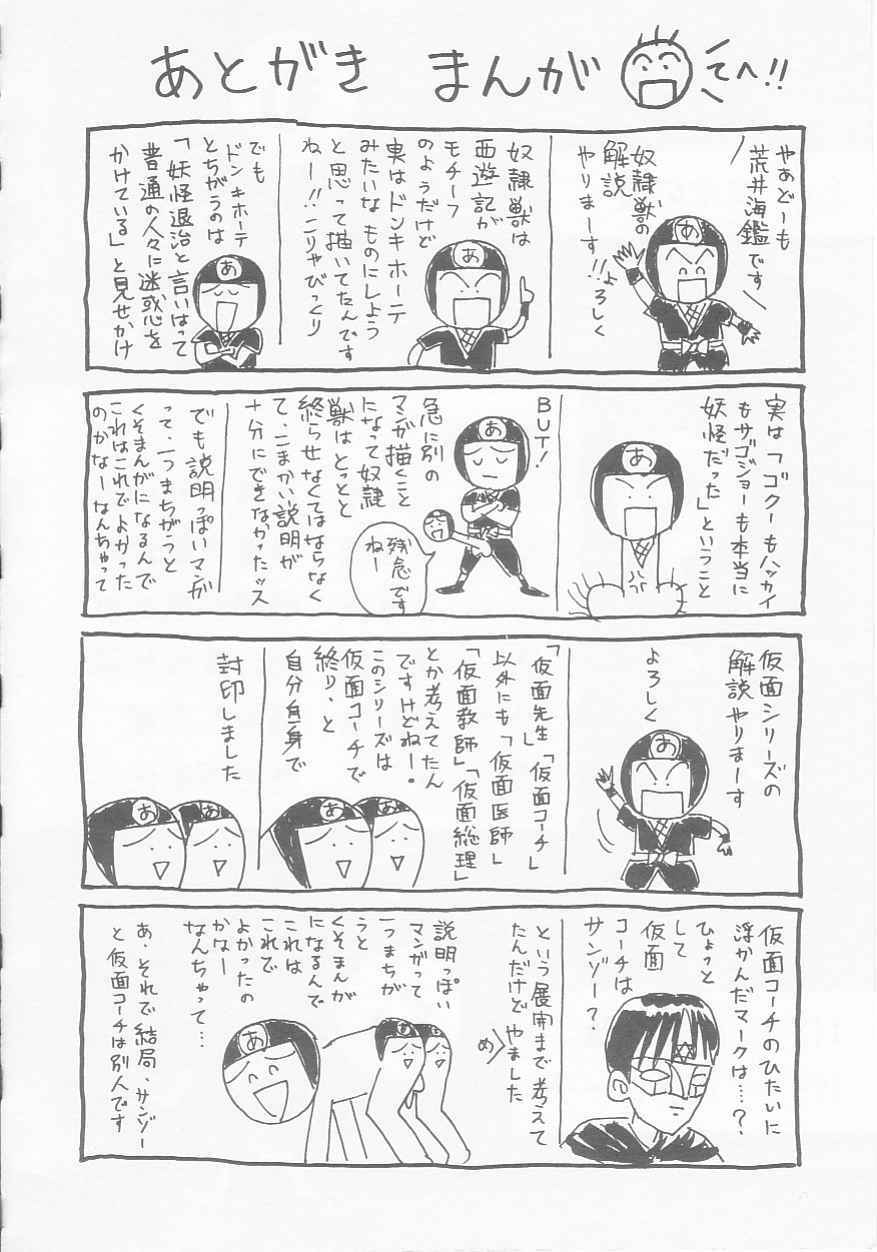 あとがき まんが
てへ!!
やあどーも
荒井海鑑です
奴隷獣の
解説
やりまーす!!
よろしく
あ
奴隷獣は
西遊記が
モチーフ
のようだけど
実はドンキホーテ
みたいなものにしよう
と思って描いてたんです
ねー!!こりゃびっくり
あ
でも
ドンキホーテ
とちがうのは
「妖怪退治と言いはって
普通の人々に迷惑を
かけている」と見せかけ
あ
実は「ゴクーもハッカイ
もサゴジョーも本当に
妖怪だった」ということ
あ
BUT!
急に別の
マンガ描くこと
になって奴隷
獣はとっとと
終らせなくてはならなく
て、こまかい説明が
十分にできなかったッス
あ
残念です
ねー
でも説明っぽいマンガ
って、一つまちがうと
くそまんがになるんで
これはこれでよかった
のかなーなんちゃって
仮面シリーズの
解説やりまーす
よろしく
あ
「仮面先生」「仮面コーチ」
以外にも「仮面医師」
「仮面教師」「仮面総理」
とか考えてたん
ですけどねー。
このシリーズは
仮面コーチで
終り、と
自分自身で
あ
あ
封印しました
あ
あ
仮面コーチのひたいに
浮かんだマークは……?
ひょっと
して
仮面
コーチは
サンゾー?
という展開まで考えて
たんだけどやました
め
説明っぽい
マンガって
一つまちが
うと
くそまんが
になるんで
これは
これで
よかったの
かなー
なんちゃって…
あ
あ
あ
あ、それで結局、サンゾー
と仮面コーチは別人です